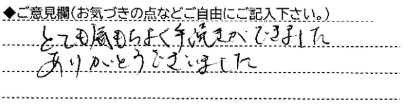 ◆ご意見欄(お気づきの点などご自由にご記入下さい。)
とても気もちよく手続きができました
ありがとうございました